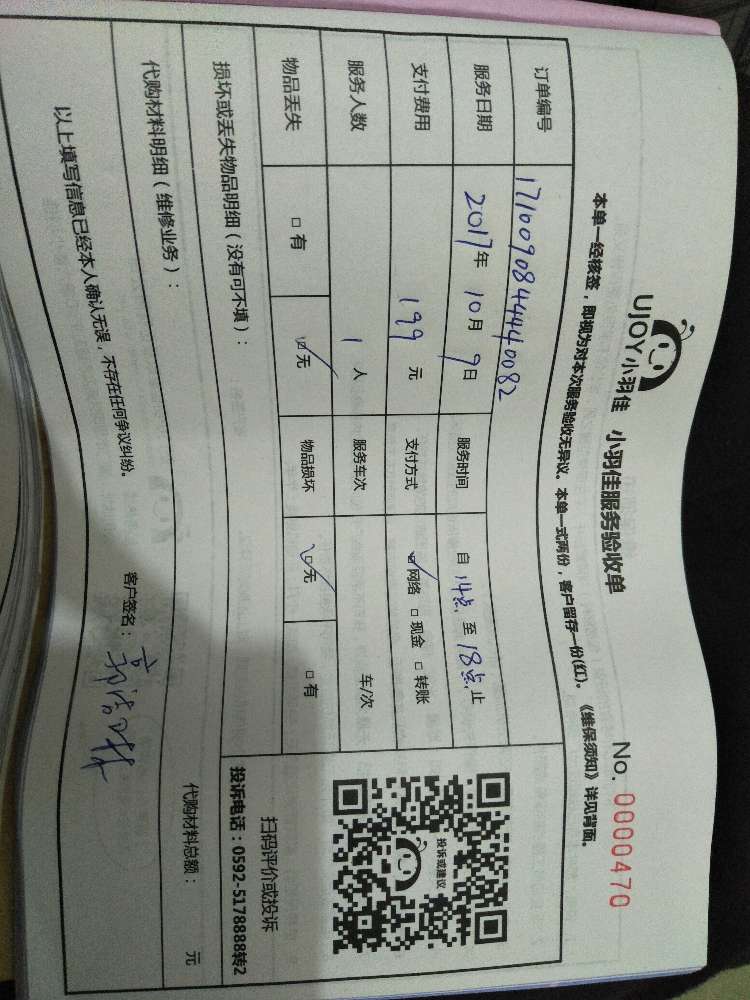 UJOY小羽佳 小羽佳服务验收单 No. 0000470
本单一经核签，即视为对本次服务验收无异议。本单一式两份，客户留存一份(红)。《维保须知》详见背面。
订单编号 1710090844440082
服务日期 2017年 10月 9日 服务时间 自 14点 至 18点 止
支付费用 199 元 支付方式 ☑网络 □现金 □转账
服务人数 1 人 服务车次 车/次
物品丢失 □有 ☑无 物品损坏 ☑无 □有
损坏或丢失物品明细（没有可不填）：
投诉或建议
扫码评价或投诉
投诉电话：0592-5178888转2
代购材料明细（维修业务）： 代购材料总额： 元
以上填写信息已经本人确认无误，不存在任何争议纠纷。 客户签名：